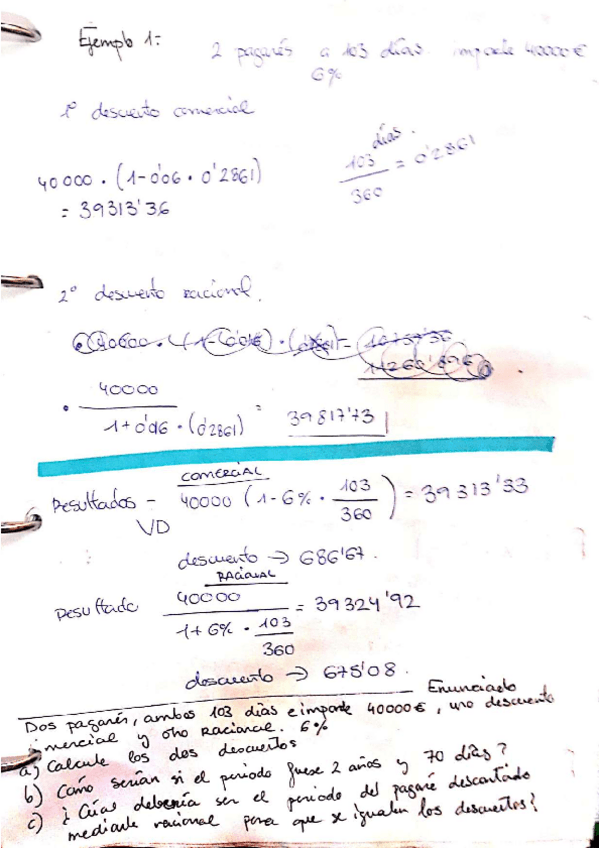 Ejemplo 1:
2 pagarés a 103 días. importe 40000€
6%
1º descuento comercial
días.
103/360 = 0'2861
40000 · (1-0'06 · 0'2861)
= 39313'36
2º descuento racional.
· 40000/1+0'06 · (0'2861) = 39817'73
COMERCIAL
Resultados - 40000 (1-6% · 103/360) = 39313'33
VD
descuento → 686'67.
RACIONAL
Resultado 40000/1+6% · 103/360 = 39324'92
descuento → 675'08.
Enunciado
Dos pagarés, ambos 103 días e importe 40000€, uno descuento
comercial y otro racional. 6%
a) Calcule los dos descuentos
b) Cómo serían si el periodo fuese 2 años y 70 días?
c) ¿Cúas debería ser el periodo del pagaré descontado
mediante racional para que se igualen los descuentos?